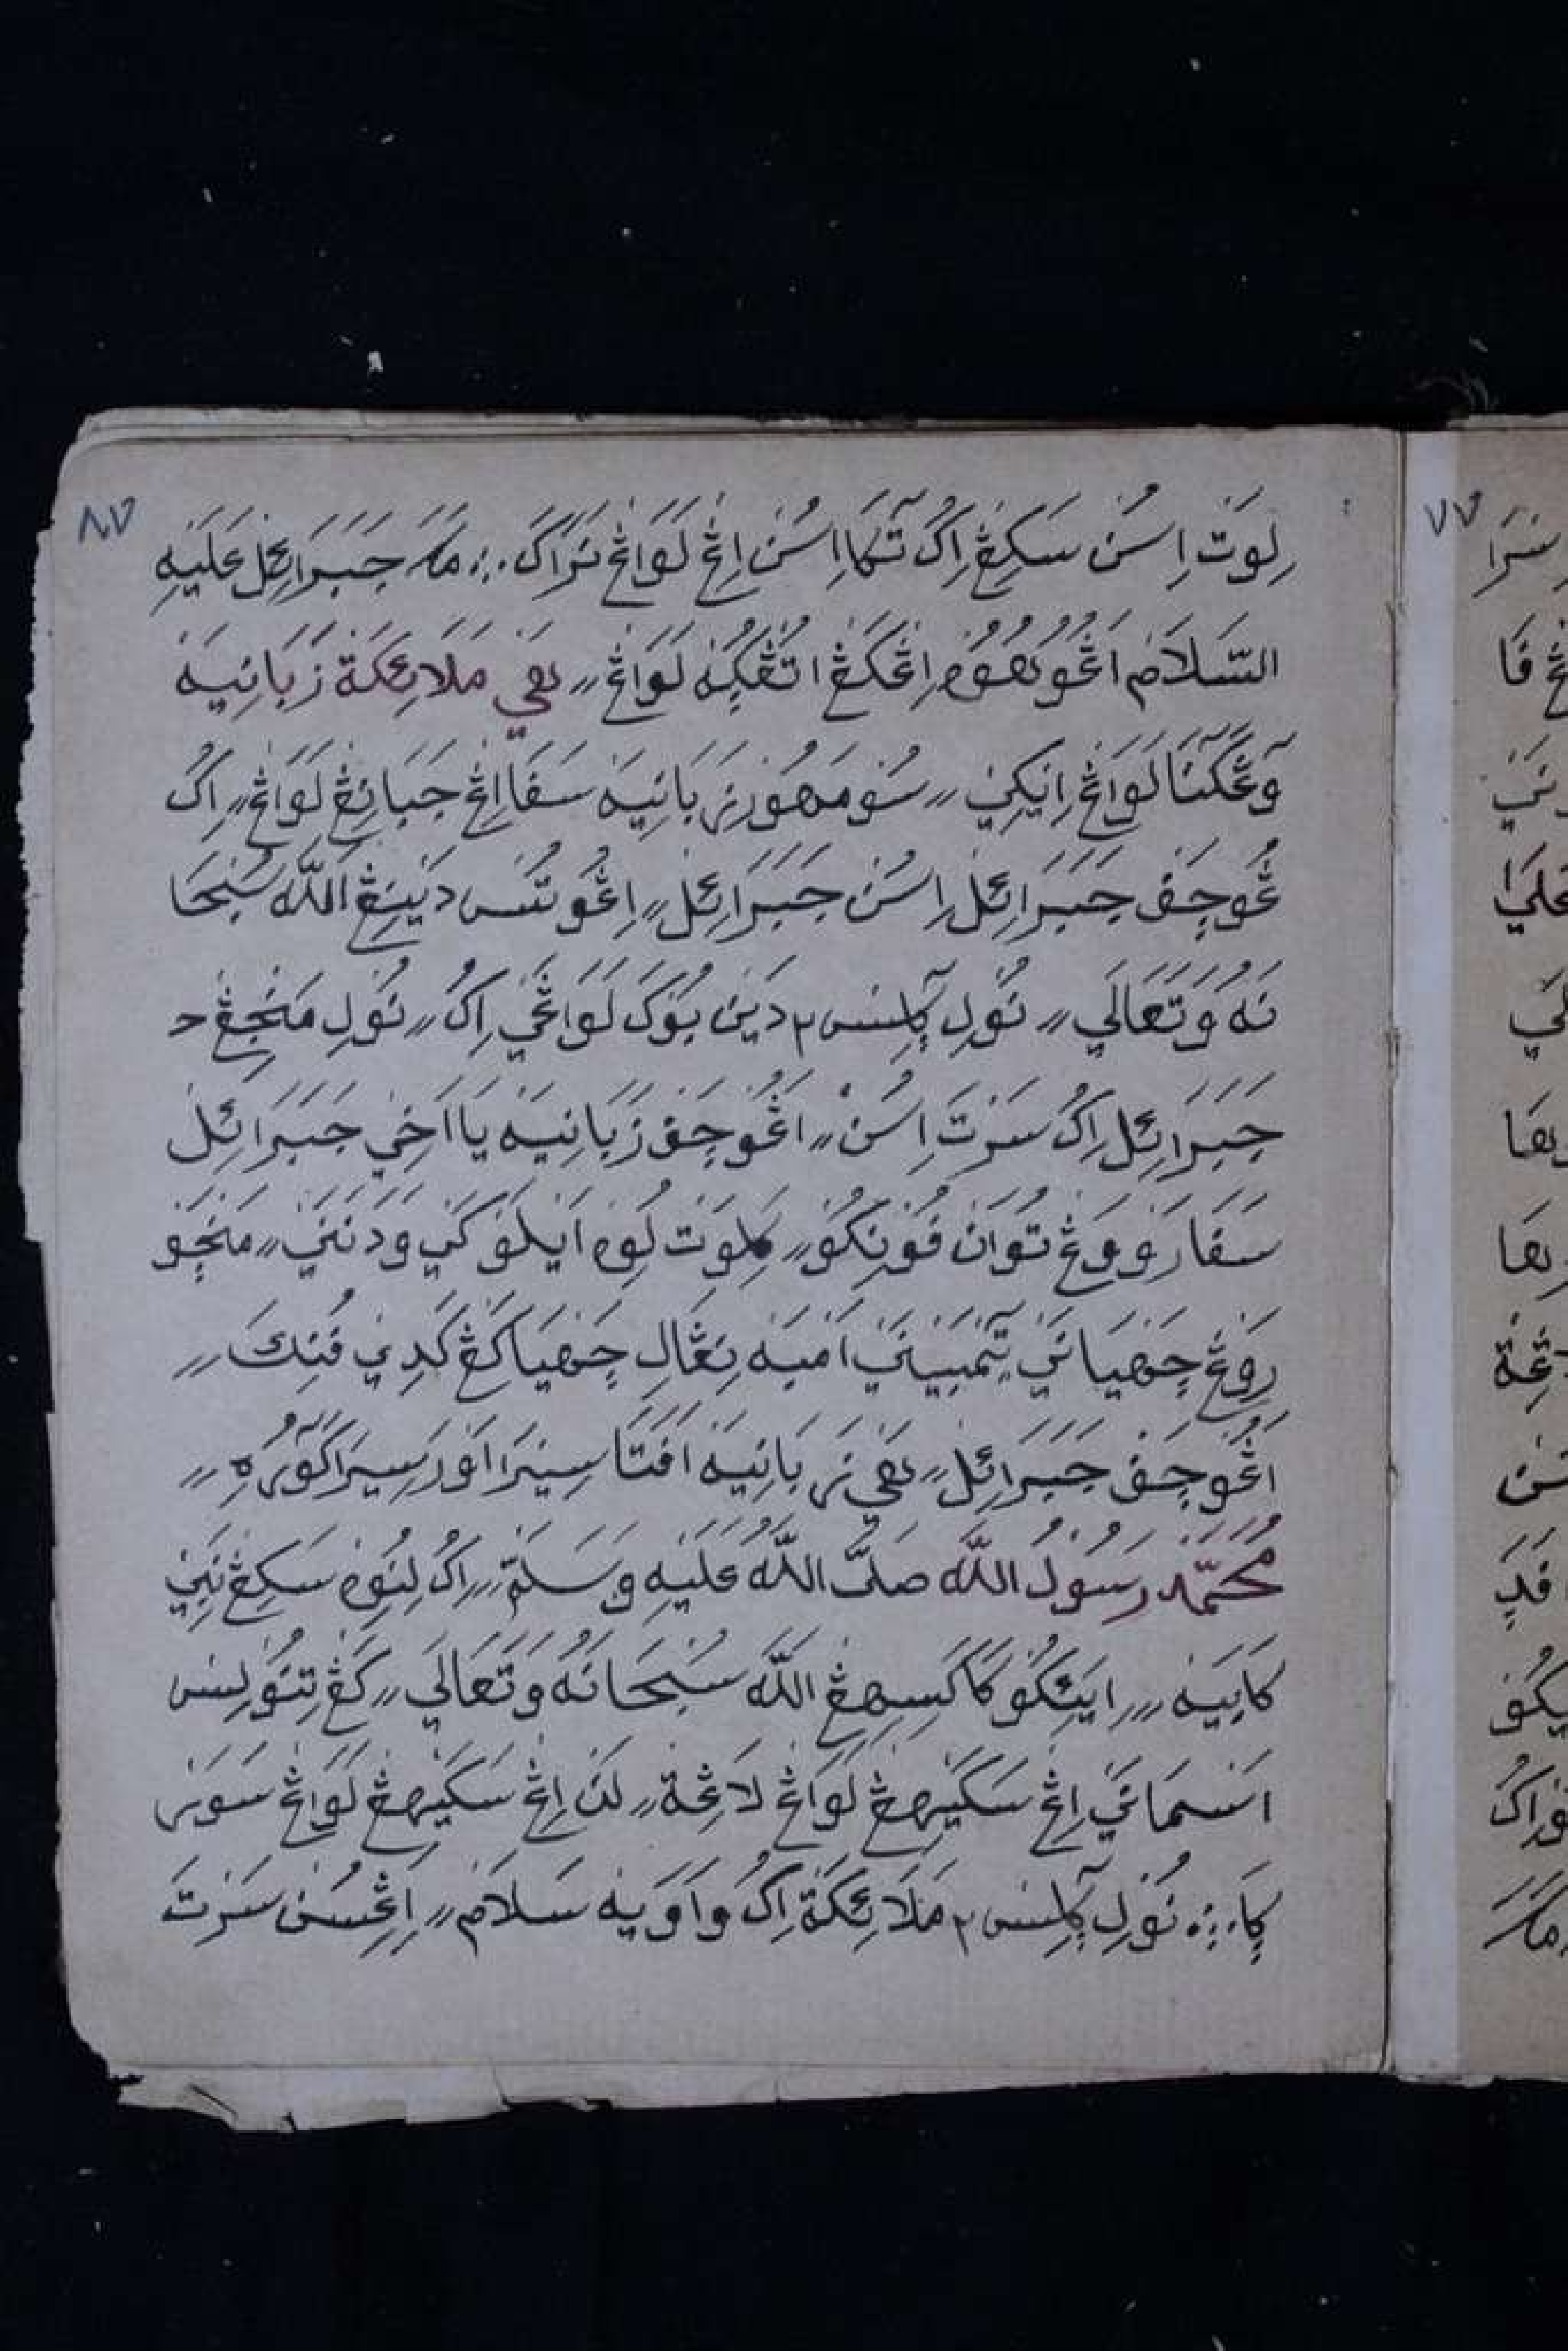 ٨٧
لِوَت اِسُن سَكِڠ اِكُ تٓكَا اِسُن اِڠ لَوَاڠ نَرَاكَ ؞ مَكَ جَبَرَائِل عَلَيْهِ
السَّلَام اَڠُوبُهُوم اِڠكَڠ اڠكُنه لَوَاڠ ٫٫ هَي مَلَائِكَة زَبَانِيَه
وٓڠَكٓنَا لَوَاڠ اِنِكِي ٫٫ سُومَهُور زَبَانِيَه سَفَا اِڠ جَبَانِڠ لَوَاڠ ٫٫ اِكُ
ڠُوچَف جَبَرَائِل اِسُن جَبَرَائِل ٫٫ اِڠُوتُس دَيْنِڠ اللّٰه سُبْحَا
نَهُ وَتَعَالَي ٫٫ نُولِ ڮٓلِس٢ دَين بُوكَ لَوَاڠَي اِكُ ٫٫ نُولِ مَنْجِڠ
جَبَرَائِل اِكُ سَرْتَ اِسُن ٫٫ اَڠُوچَف زَبَانِيَه يَا اَخِي جَبَرَائِل
سَفَا رَوْوَڠ تُوَان فُونِكُو ٫٫ كَلِوَت لُوِه اَيلَوْكَي وَدَنَنَي ٫٫ مَنْچَو
رَوڠ چَهْيَانَي تٓمْبَيْنَي اَمْبَه نِڠَالِ چَهْيَا كَڠ كَدِي فُنِكَ ٫٫
اَڠُوچَف جَبَرَائِل ٫٫ هَي زَبَانِيَه اَفَتَا سِيْرَا اَورَ سِيرَا كٓوْرُه ٫٫
مُحَمَّد رَسُولُ اللّٰه صَلَّى اللّٰهُ عَلَيْهِ وَسَلَّمَ ٫٫ اِكُ لُوِه سَكِڠ نَبِي
كَابَيْه ٫٫ اِيَيْكُو كَاكَسِهِڠ اللّٰه سُبْحَانَهُ وَتَعَالَي ٫٫ كَڠ تِنُولِس
اَسْمَانَي اِڠ سَكَيْهِڠ لَوَاڠ لَاڠِة ٫٫ لَن اِڠ سَكَيْهِڠ لَوَاڠ سَوَر
ڮَا ؞ نُولِ ڮٓلِس٢ مَلَائِكَة اِكُ وَاوَيْه سَلَام ٫٫ اِڠِسُن سَرْتَ
٧٧